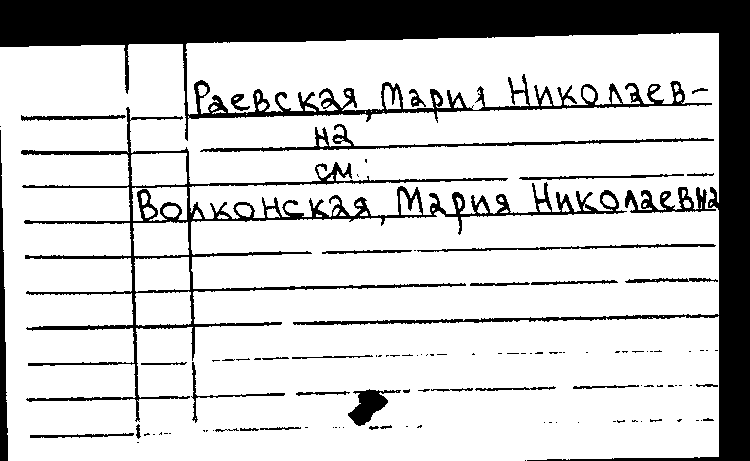 Раевская, Мария Николаев-
на
см.:
Волконская, Мария Николаевна